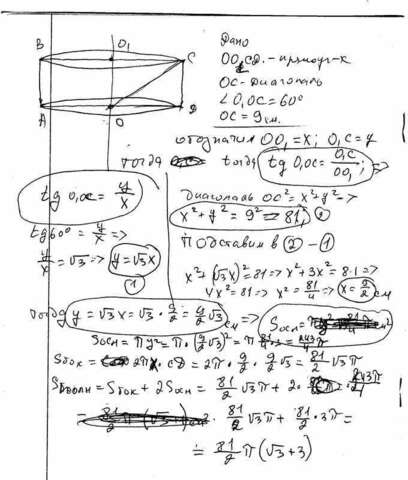 Дано
B O₁ C
OO₁CD - прямоуг-к
OC - Диагональ
∠O₁OC = 60°
OC = 9 см.
A O D
обозначим OO₁ = x; O₁C = y
тогда тогда tg O₁OC = O₁C / OO₁ ⇒
tg O₁OC = y/x
Диагональ OC² = x² + y² ⇒
x² + y² = 9² = 81 ②
tg 60° = y/x ⇒
Подставим в ② - ①
y/x = √3 ⇒ y = √3x
①
x² + (√3x)² = 81 ⇒ x² + 3x² = 81 ⇒
4x² = 81 ⇒ x² = 81/4 ⇒ x = 9/2 см
тогда y = √3x = √3 · 9/2 = 9/2 √3 см ⇒ Sосн =
Sосн = πy² = π · (9/2 √3)² = π 81/4 · 3 = 243π/4
Sбок = 2πx · CD = 2π · 9/2 · 9/2 √3 = 81/2 √3π
Sполн = Sбок + 2Sосн = 81/2 √3π + 2 · 243π/4
= 81/2 √3π + 81/2 · 3π =
= 81/2 π(√3 + 3)